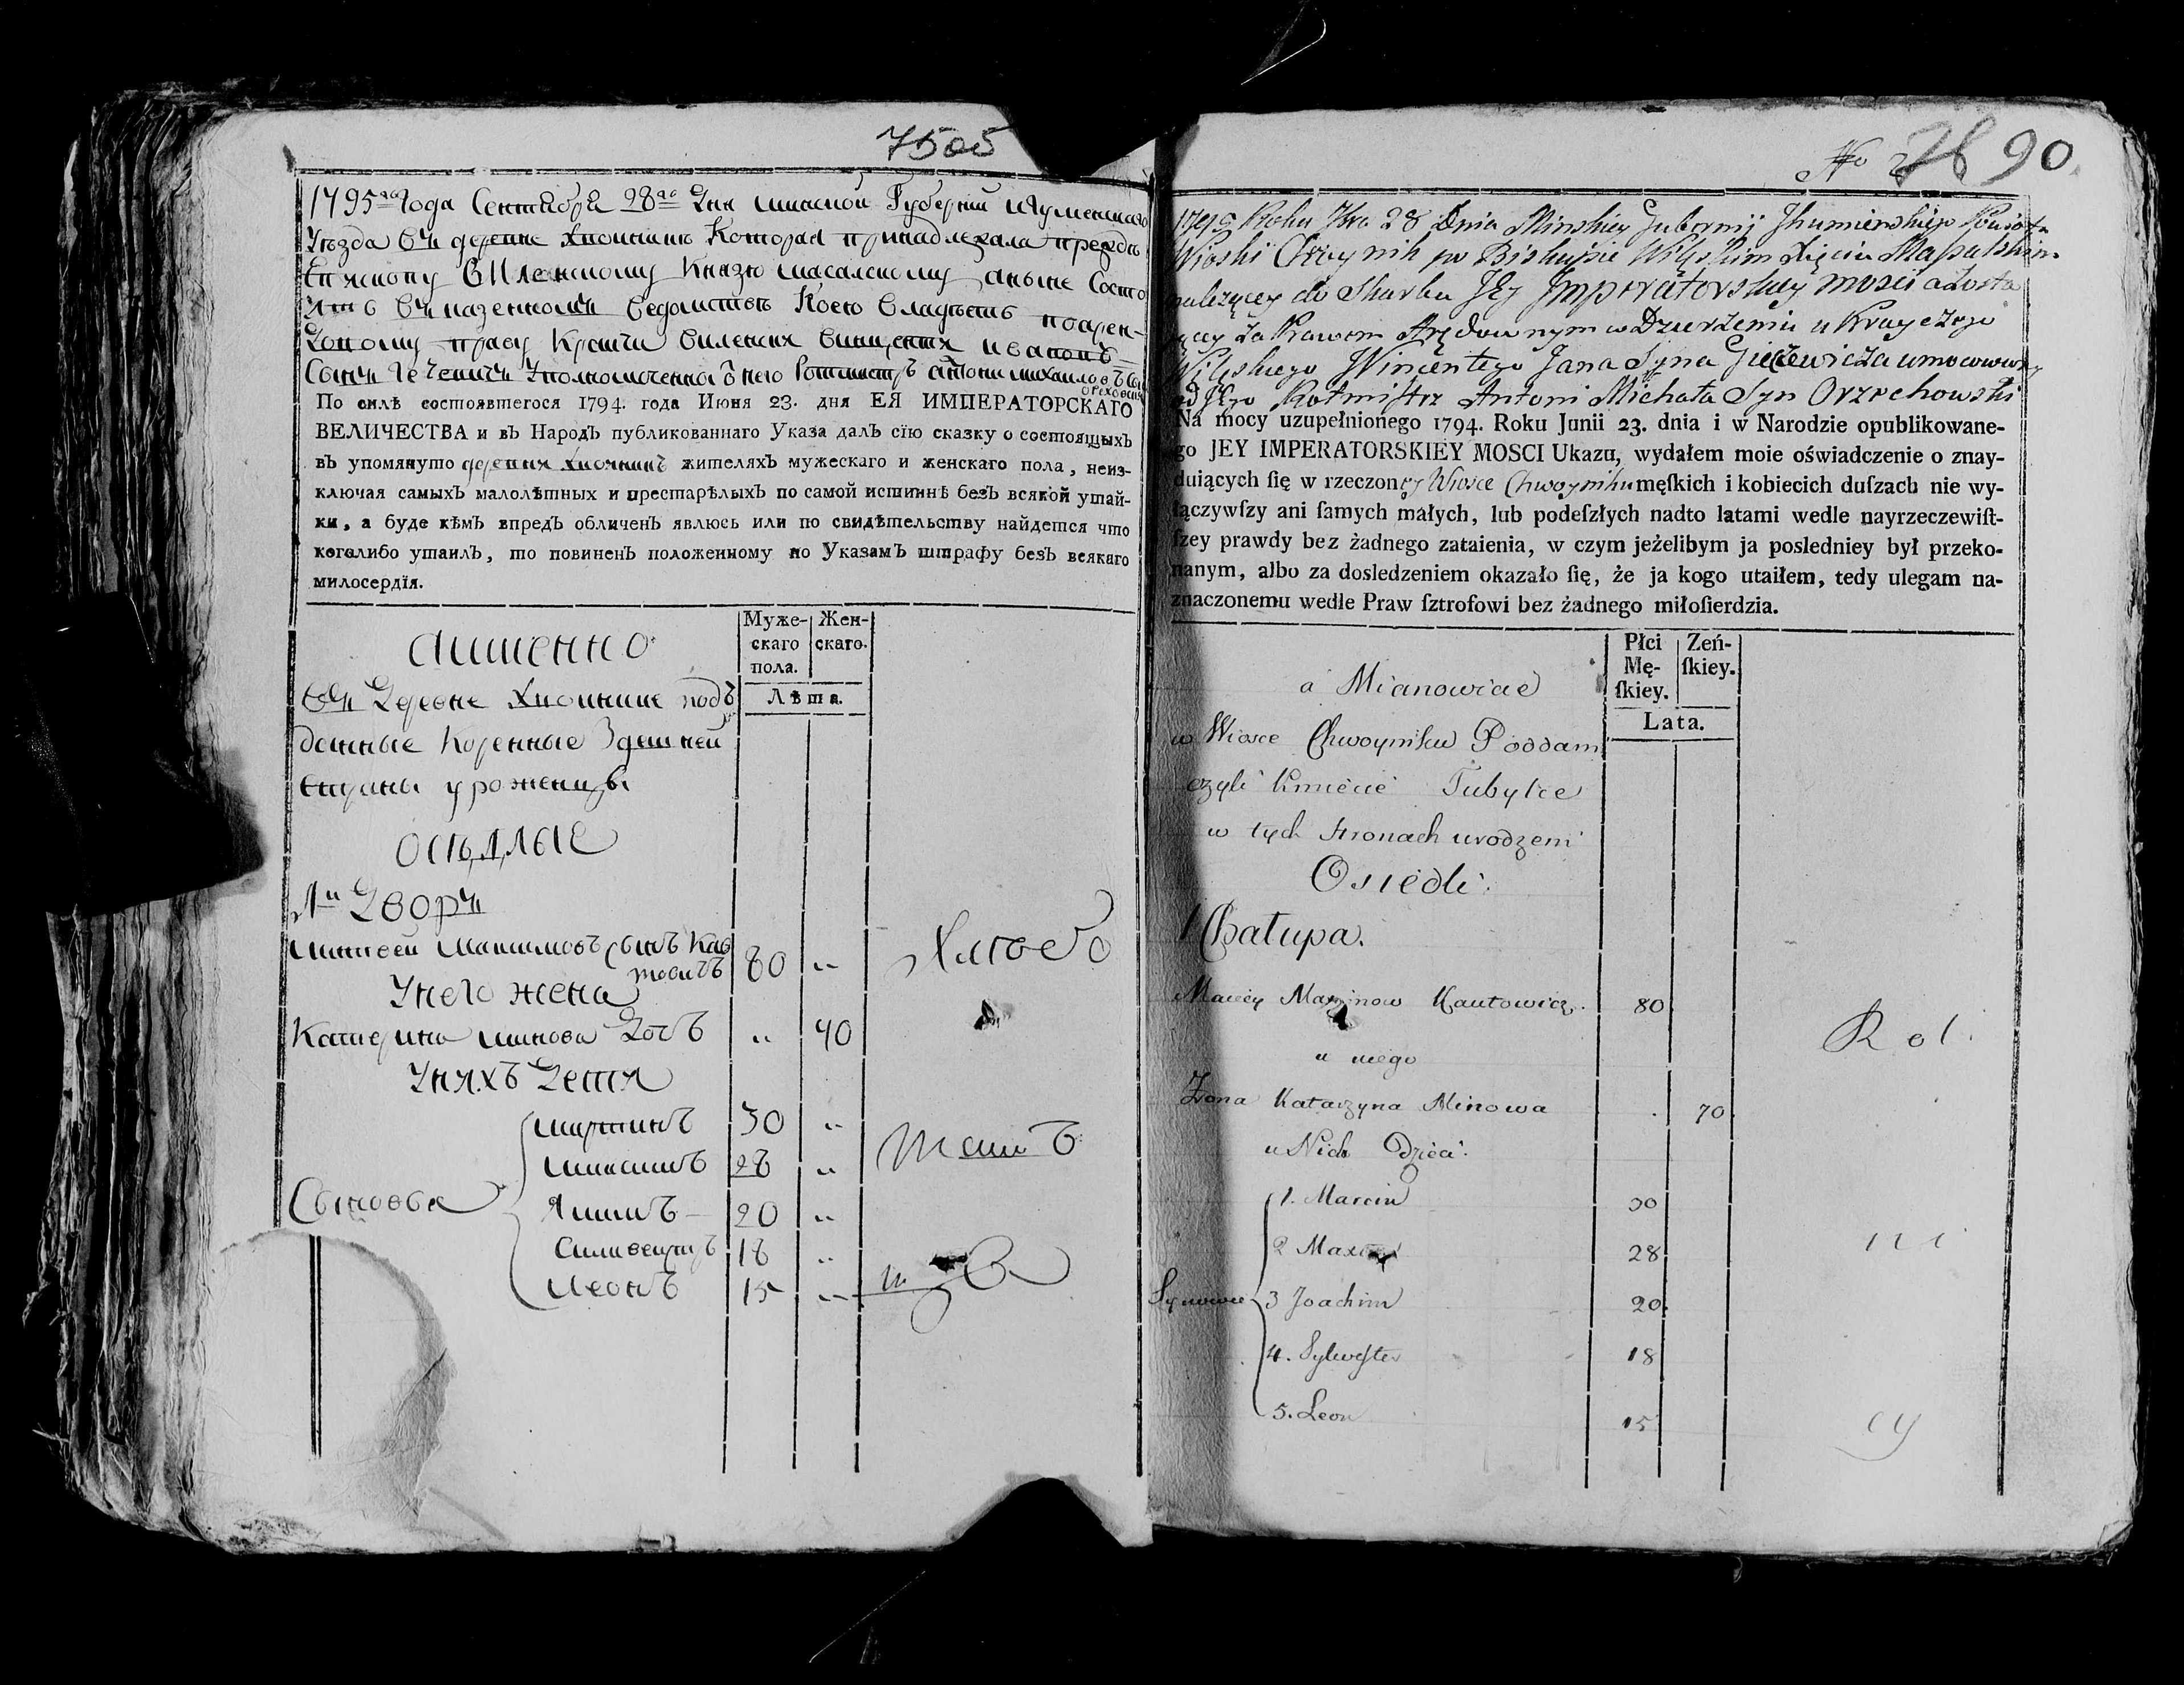 7505
1795го года Сентября 28го дня минской Губернии Игуменскаго
Уезда въ деревне Хвоиники Которая принадлежала прежде
Епископу Виленскому Князю масалскому аныне Состо
итъ въ казенномъ ведомстве Коего владеетъ поарен-
дному праву Виленски Иванов
Сынъ уполномоченной от него Ротмистръ антони михайловъ Сынъ
Ореховски
По силѣ состоявшегося 1794. года Июня 23. дня ЕЯ ИМПЕРАТОРСКАГО
ВЕЛИЧЕСТВА и въ Народъ публикованнаго Указа далъ сїю сказку о состоящыхъ
въ упомянуто деревни жителяхъ мужескаго и женскаго пола, неиз-
ключая самыхъ малолѣтныхъ и престарѣлыхъ по самой истиннѣ безъ всякой утай-
ки, а буде кѣмъ впредъ обличенъ явлюсь или по свидѣтельству найдется что
коголибо утаилъ, то повиненъ положенному по Указамъ штрафу безъ всякаго
милосердїя.
Муже-
скаго
пола.
Жен-
скаго.
Лѣта.
аименно
въ деревне Хвоинике подъ
данные Коренные Здешней
страны уроженцы
оседлые
1й Дворъ
матвеи Максимовъ сынъ Кав
товичъ 80 "
Унего жена
Катерина минова Дочь " 70
Унихъ Дети
Сыновья
мартинъ 30 "
максимъ 28 "
Якимъ 20 "
Силивестръ 18 "
Леонъ 15 "
No 90
1795 Roku 7bra 28 Dnia Minskiey Gubernij Jhumienskiego Powiatu
Wioski Chwoynik po Biskupie Wilenskim Xięciu Massalskim
należącey do Skarbu Jey Jmperatorskiey mosci a zosta
iącey za Prawem Arędownym w Dzierżeniu u Krayczego
Wileńskiego Wincentego Jana Syna Gieczewicza umocowany
od Jego Rotmistrz Antoni Michała Syn Orzechowski
Na mocy uzupełnionego 1794. Roku Junii 23. dnia i w Narodzie opublikowane-
go JEY IMPERATORSKIEY MOSCI Ukazu, wydałem moie oświadczenie o znay-
duiących ſię w rzeczoney Wiosce Chwoyniku męſkich i kobiecich duſzach nie wy-
łączywſzy ani ſamych małych, lub podeſzłych nadto latami wedle nayrzeczewiſt-
ſzey prawdy bez żadnego zataienia, w czym jeżelibym ja posledniey był przeko-
nanym, albo za dosledzeniem okazało ſię, że ja kogo utaiłem, tedy ulegam na-
znaczonemu wedle Praw ſztrofowi bez żadnego miłoſierdzia.
Płci
Mę-
ſkiey.
Zeń-
ſkiey.
Lata.
a Mianowicie
w Wiosce Chwoyniku Poddani
czyli Kmiecie Tubylce
w tych stronach urodzeni
Osiedli.
1 Chałupa.
Maciey Maxymow Kautowicz. 80
u niego
Żona Katarzyna Minowa 70
u Nich Dzieci.
Synowie
1. Marcin 30
2 Maxim 28
3 Joachim 20
4. Sylwester 18
5. Leon 15